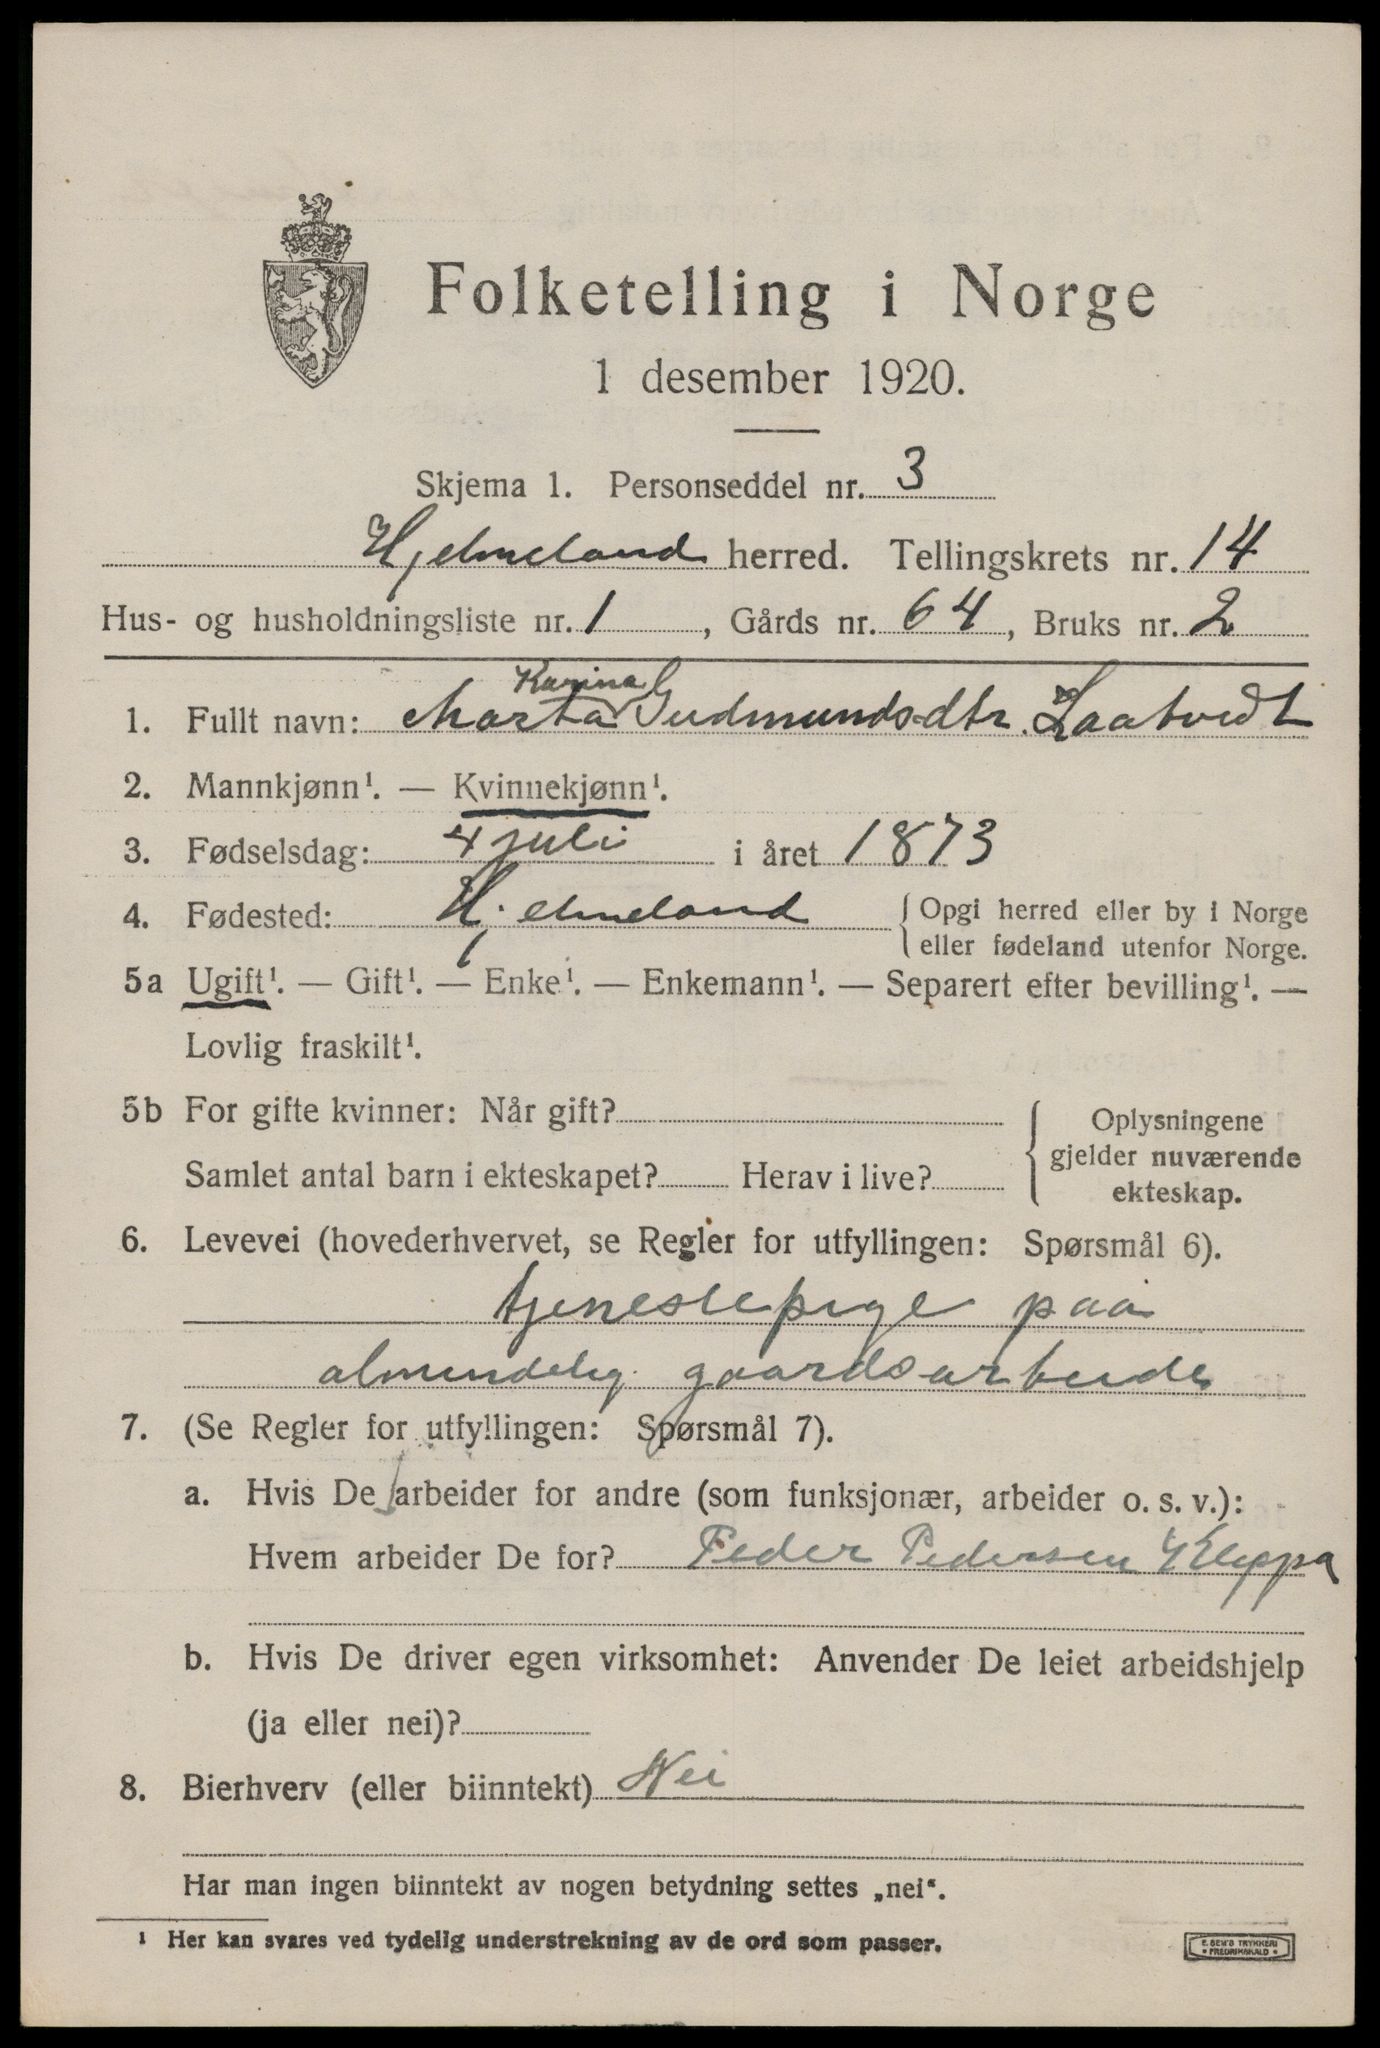 Folketelling i Norge
1 desember 1920.
Skjema 1. Personseddel nr. 3
Hjelmeland herred. Tellingskrets nr. 14
Hus- og husholdningsliste nr. 1, Gårds nr. 64, Bruks nr. 2
Karina
1. Fullt navn: Marta Gudmundsdtr. Laatvedt
2. Mannkjønn¹. — Kvinnekjønn¹.
3. Fødselsdag: 4 juli i året 1873
4. Fødested: Hjelmeland {Opgi herred eller by i Norge
eller fødeland utenfor Norge.
5a Ugift¹. — Gift¹. — Enke¹. — Enkemann¹. — Separert efter bevilling¹. —
Lovlig fraskilt¹.
5b For gifte kvinner: Når gift?
Samlet antal barn i ekteskapet? Herav i live?
Oplysningene
gjelder nuværende
ekteskap.
6. Levevei (hovederhvervet, se Regler for utfyllingen: Spørsmål 6).
tjenestepige paa
almindelig gaardsarbeide
7. (Se Regler for utfyllingen: Spørsmål 7).
a. Hvis De arbeider for andre (som funksjonær, arbeider o. s. v.):
Hvem arbeider De for? Peder Pedersen Kleppa
b. Hvis De driver egen virksomhet: Anvender De leiet arbeidshjelp
(ja eller nei)?
8. Bierhverv (eller biinntekt) Nei
Har man ingen biinntekt av nogen betydning settes „nei“.
¹ Her kan svares ved tydelig understrekning av de ord som passer.
E. SEM'S TRYKKERI
• FREDRIKSHALD •